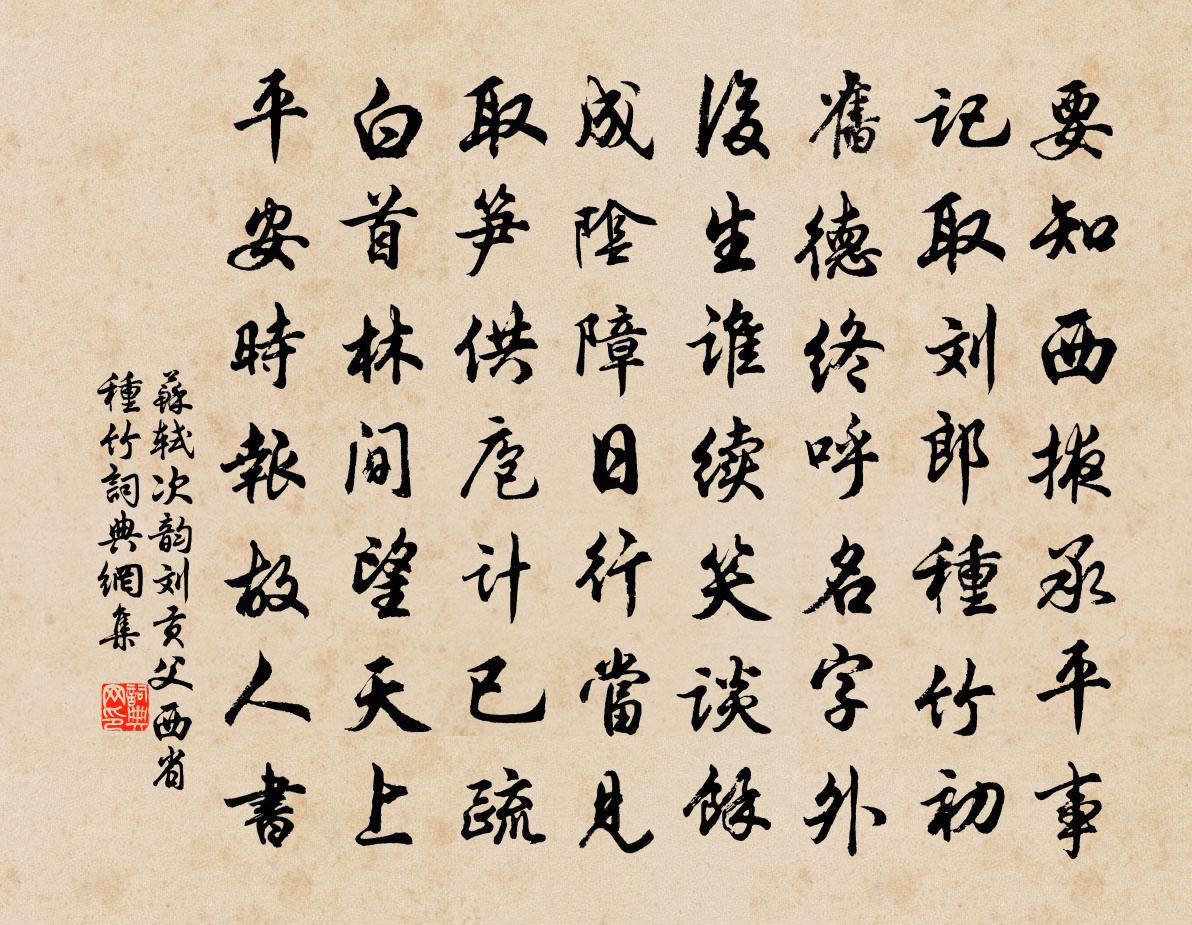 要知西掖承平事
記取刘郎種竹初
舊德終呼名字外
後生谁续笑談餘
成陰障日行當見
取笋供庖計已疏
白首林間望天上
平安時報故人書
蘇軾次韵刘贡父西省
種竹詞典網集
詞典网印